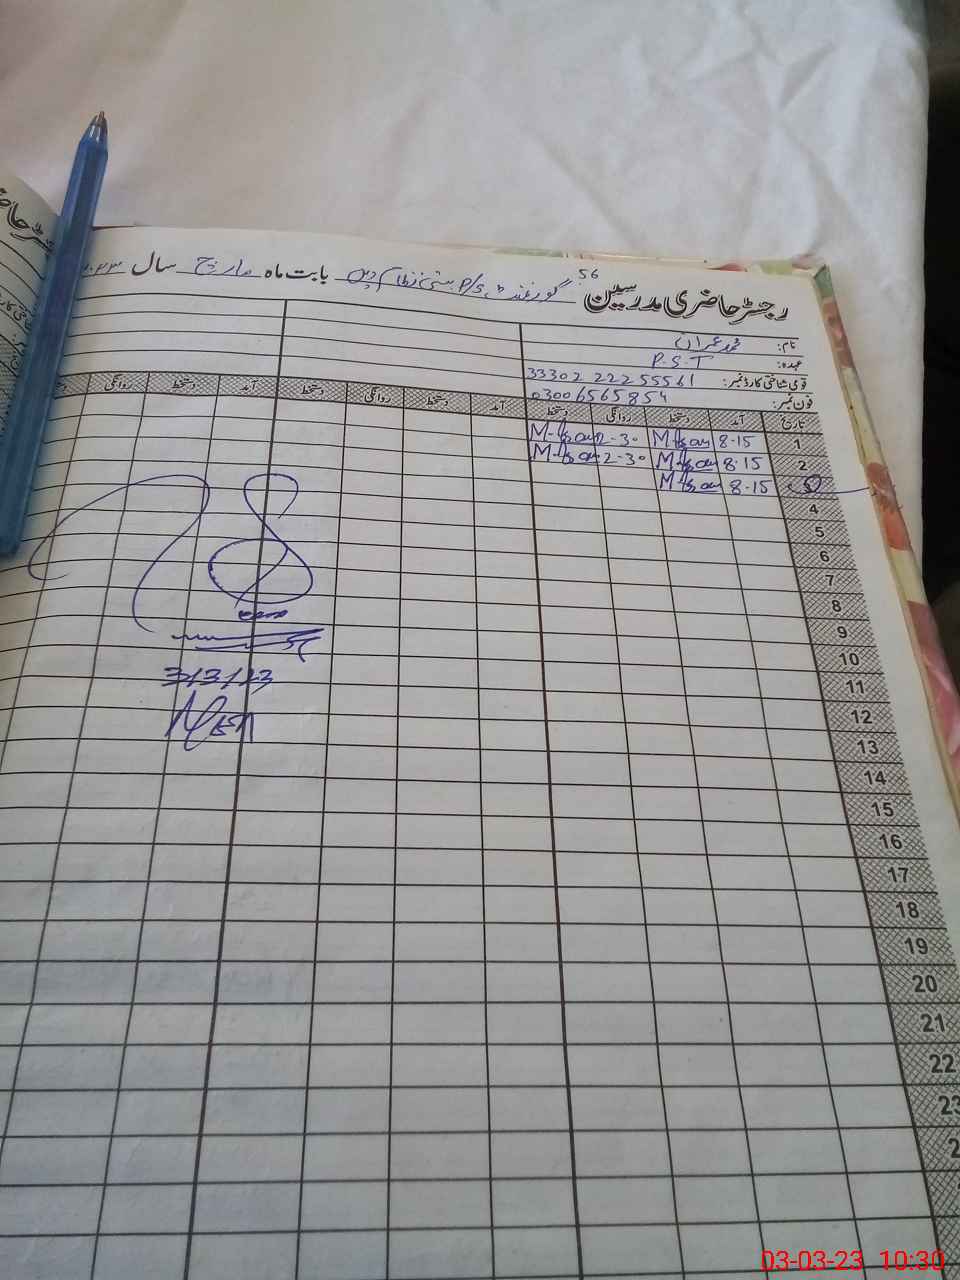 56
رجسٹر حاضری مدرسین گورنمنٹ P/S بستی نظام بابت ماہ مارچ سال
نام: محمد عمران
عہدہ: P.S.T
قومی شناختی کارڈ نمبر: 33302 22255561
فون نمبر: 03006565854
تاریخ آمد دستخط روانگی دستخط آمد دستخط روانگی دستخط آمد دستخط روانگی
1 8-15 2-30
2 8-15 2-30
8-15
4
5
6
7
8
9
10
11
12
13
14
15
16
17
18
19
20
21
22
23
3/3/23
03-03-23 10:30